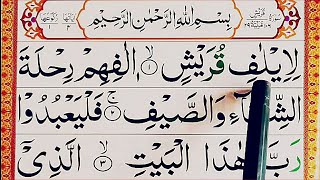 بِسْمِ اللّٰهِ الرَّحْمٰنِ الرَّحِيْمِ
لِاِيْلٰفِ قُرَيْشٍ ۙ﴿۱﴾ اٖلٰفِهِمْ رِحْلَةَ
الشِّتَآءِ وَالصَّيْفِ ۚ﴿۲﴾ فَلْيَعْبُدُوْا
رَبَّ هٰذَا الْبَيْتِ ۙ﴿۳﴾ الَّذِيْٓ